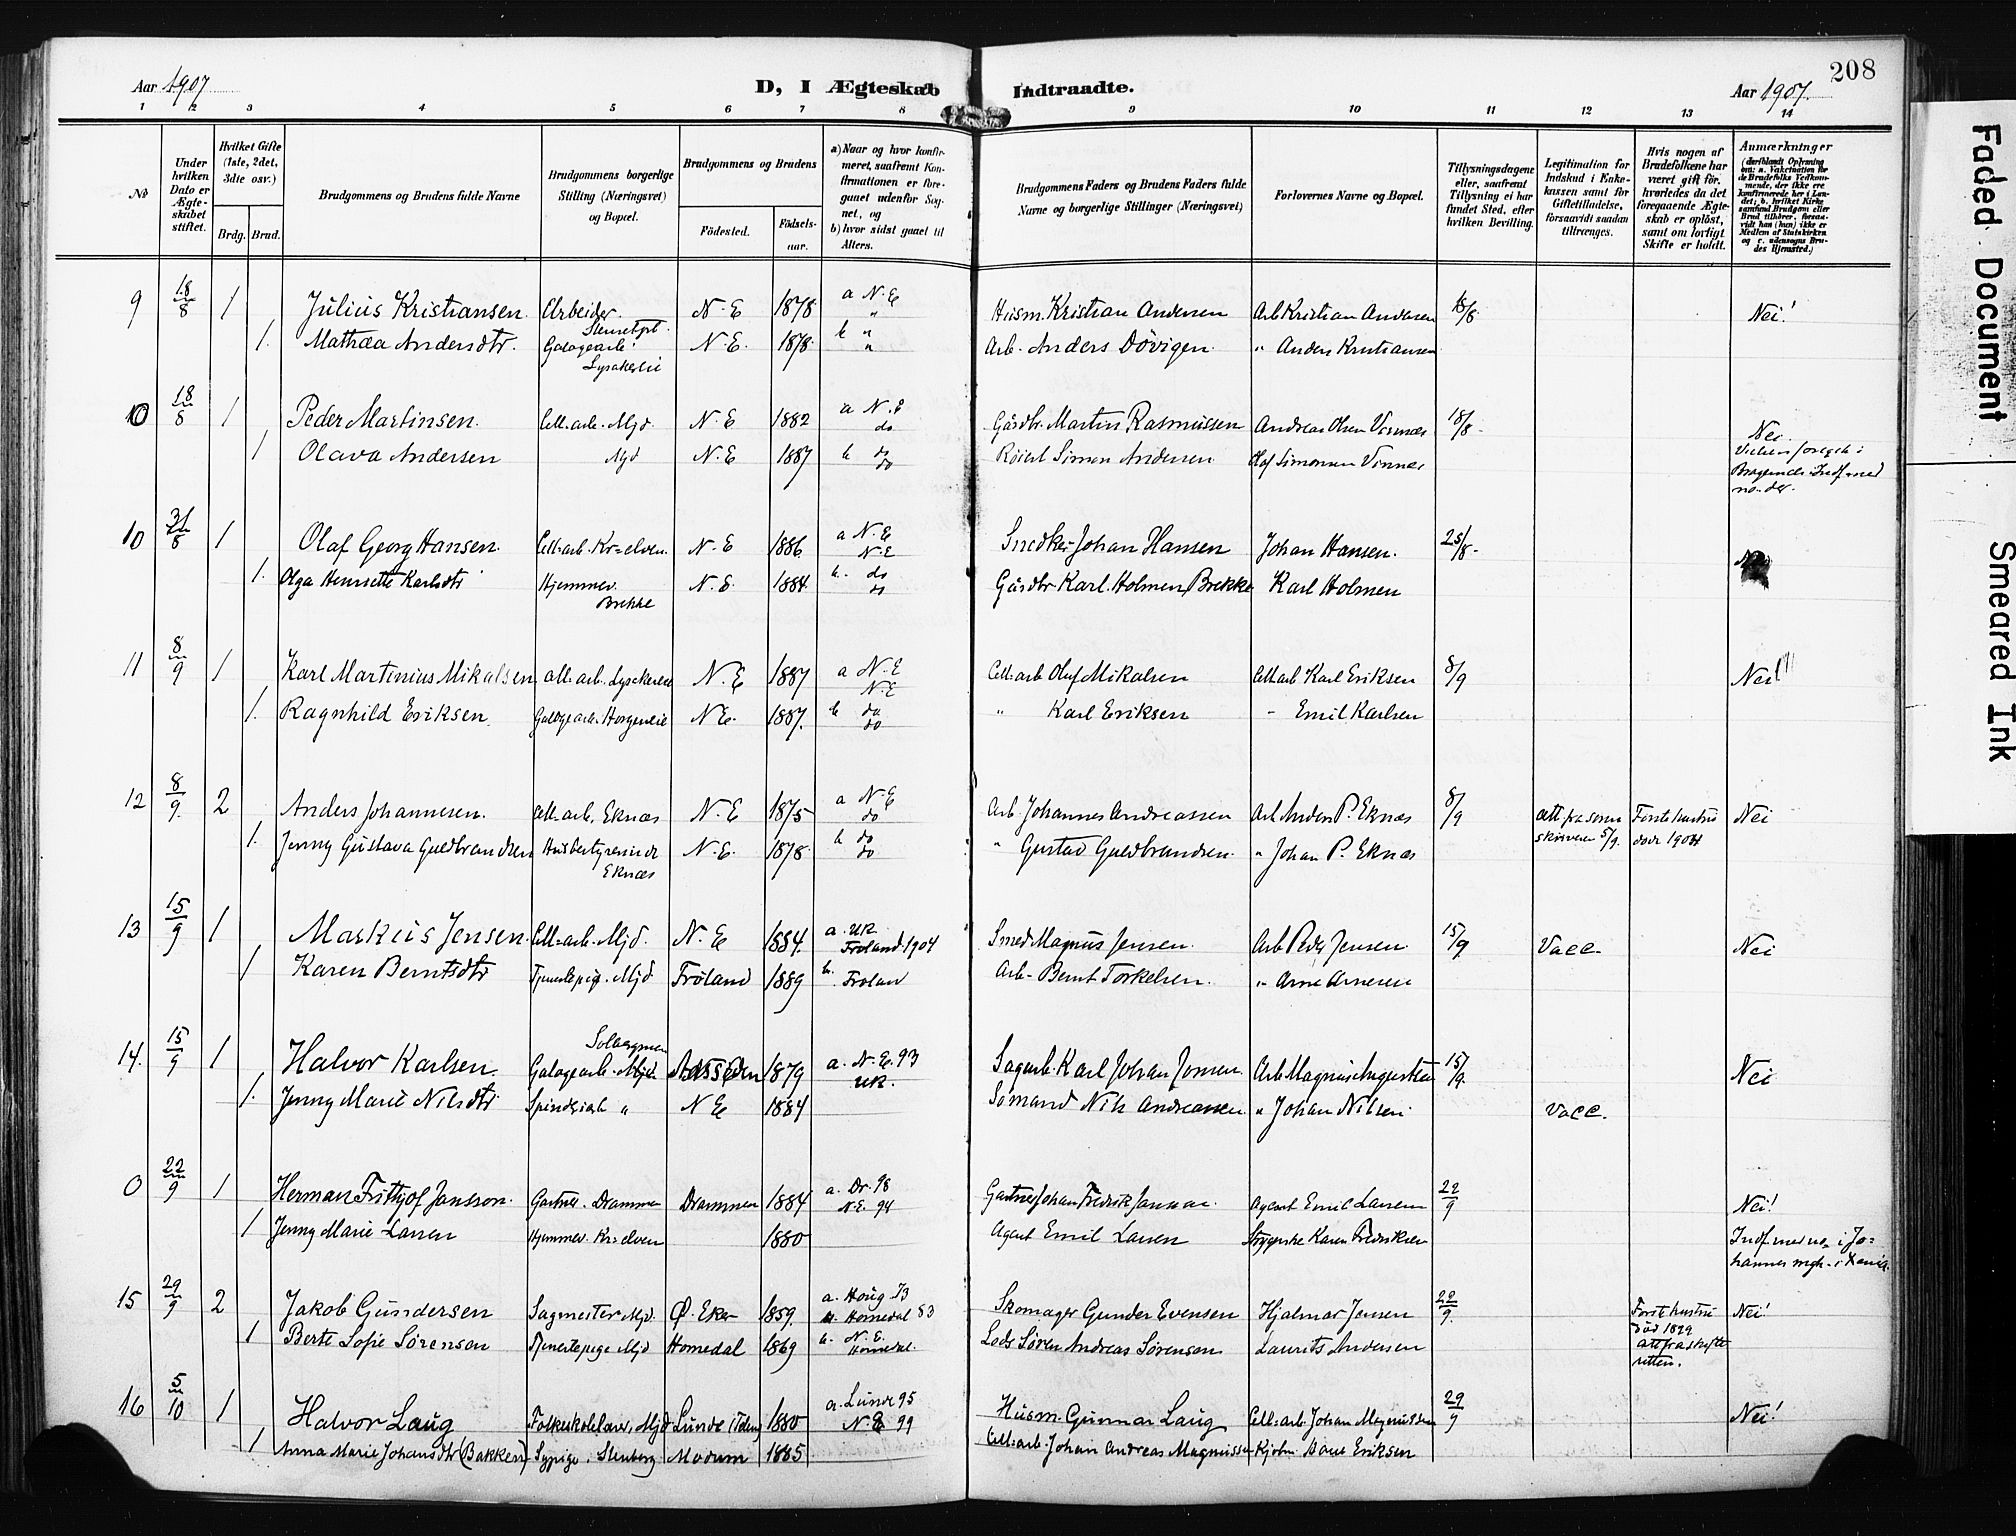 208
Aar 1907
D, I Ægteskab Indtraadte.
Aar 1907.
1 2 3 4 5 6 7 8 9 10 11 12 13 14
No
Under hvilken Dato er Ægteskabet stiftet.
Hvilket Gifte (1ste, 2det, 3die osv.)
Brdg. Brud.
Brudgommens og Brudens fulde Navne
Brudgommens borgerlige Stilling (Næringsvei) og Bopæl.
Brudgommens og Brudens
Fødested.
Fødselsaar.
a) Naar og hvor konfirmeret, saafremt Konfirmationen er foregaaet udenfor Sognet, og
b) hvor sidst gaaet til Alters.
Brudgommens Faders og Brudens Faders fulde Navne og borgerlige Stillinger (Næringsvei)
Forlovernes Navne og Bopæl.
Tillysningsdagene eller, saafremt Tillysning ei har fundet Sted, efter hvilken Bevilling.
Legitimation for Indskud i Enkekassen samt for Giftetilladelse, forsaavidt saadan tiltrænges.
Hvis nogen af Brudefolkene har været gift før, hvorledes da det foregaaende Ægteskab er opløst, samt om lovligt Skifte er holdt.
Anmærkninger
9 18/8 1 Julius Kristiansen. Arbeider. N. E 1878 a N. E Husm. Kristian Andersen Arb Kristian Andersen 18/8. Nei!
1. Mathea Andersdtr. Galogearb. Lysakerlie N. E. 1878. b " Arb. Anders Døvigen. " Anders Kristiansen
10 18/8 1 Peder Martinsen. Cell. arb. Mjd. N. E 1882 a N. E do Gårdbr. Martin Rasmussen Andreas Olsen 18/8. Nei
1 Olava Andersen Mjd N. E. 1887 b do do Simon Andersen Olaf Simonsen
10 31/8 1 Olaf Georg Hansen. Cell. arb. Kr=elven. N. E 1886 a N. E N. E Snedker Johan Hansen Johan Hansen. 25/8.
1. Olga Henriette Karlsdtr Hjemmev. Brekke N. E. 1884 b. do do Gårdbr. Karl. Holmen, Brekke Karl Holmen
11 8/9 1 Karl Martinius Mikalsen Cell. arb. Lysakerlie N. E 1887 a N. E N. E Cell. arb Olaf Mikalsen Cell. arb Karl Eriksen 8/9 Nei!
1. Ragnhild Eriksen. Galogearb. Horgenlie N. E. 1887. b do do " Karl Eriksen - Emil Karlsen
12 8/9. 2 Anders Johannesen. Cell. arb. Eknæs N. E 1875 a N. E do Arb. Johannes Andreassen Arb Anders P. Eknæs 8/9 Att fra soren skriveren 5/9. Første hustru døde 1904 Nei
1. Jenny Gustava Guldbrandsen Husbestyrerinde Eknæs N. E. 1878. b do do " Gustav Guldbrandsen. " Johan P. Eknæs
13 15/9 1 Markus Jensen. Cell. arb. Mjd. N. E 1884. a. UK. Frøland 1904 Smed Magnus Jensen. Arb Peder Jensen. 15/9 Vacc. Nei
1 Karen Berntsdtr Tjenestepige. Mjd Frøland 1889 b. Frøland Arb. Bernt Torkelsen. " Arne Arnesen
14. 15/9 1 Halvor Karlsen. Galogearb. Mjd. Aasseden 1879 a. N. E. 93 UK. Sagarb. Karl Johan Jonsen. Arb Magnus Augustsen 15/9. Nei
1. Jenny Marie Nilsdtr " N E 1884 Sømand Nils Andreassen " Johan Nilsen. Vacc.
0 22/9 1 Herman Frithjof Jansson. Gartner. Drammen Drammen 1884 a. Dr. 98 N. E. 94 Gartner Johan Fredrik Agent Emil Larsen 22/9 Nei!
1 Jenny Marie Larsen Hjemmev. Kr=elven 1880 Agent Emil Larsen Karen Fredriksen Indf. med no. i Johannes mgh. i Xania.
15 29/9 2 Jakob Gundersen Sagmester Mjd. Ø. Eker 1859. a. Houg 73 Homedal 83 Skomager Gunder Evensen Hjalmar Jensen 22/9. Første hustru død 1899 Att fra skifteretten. Nei!
1 Berte Sofie Sørensen Tjenestepige Mjd Homedal 1869 b. N. E. Homedal. Lods Søren Andreas Sørensen Laurits Andersen
16 5/10 1 Halvor Laug Folkeskolelærer, Mjd Lunde i Telem 1880 a. Lunde 95 N. E 99 Husm. Gunnar Laug Cell. arb. Johan Magnussen 29/9 Nei!
1 Anna Marie Johansdtr (Bakken) Sypige. Stenberg Modum 1885 Cell. arb. Johan Andreas Magnussen Eriksen
Faded Document
Smeared Ink